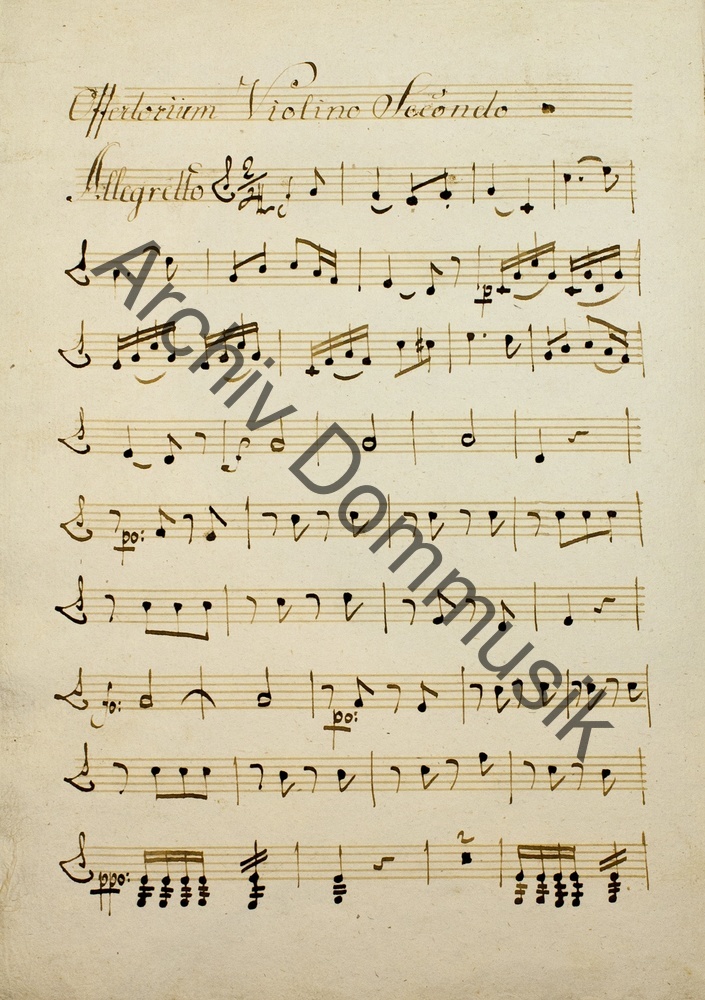 Offertorium Violino Secondo
Allegretto 2/4
p
f
po:
fo:
po:
ppo: 2
Archiv Dommusik